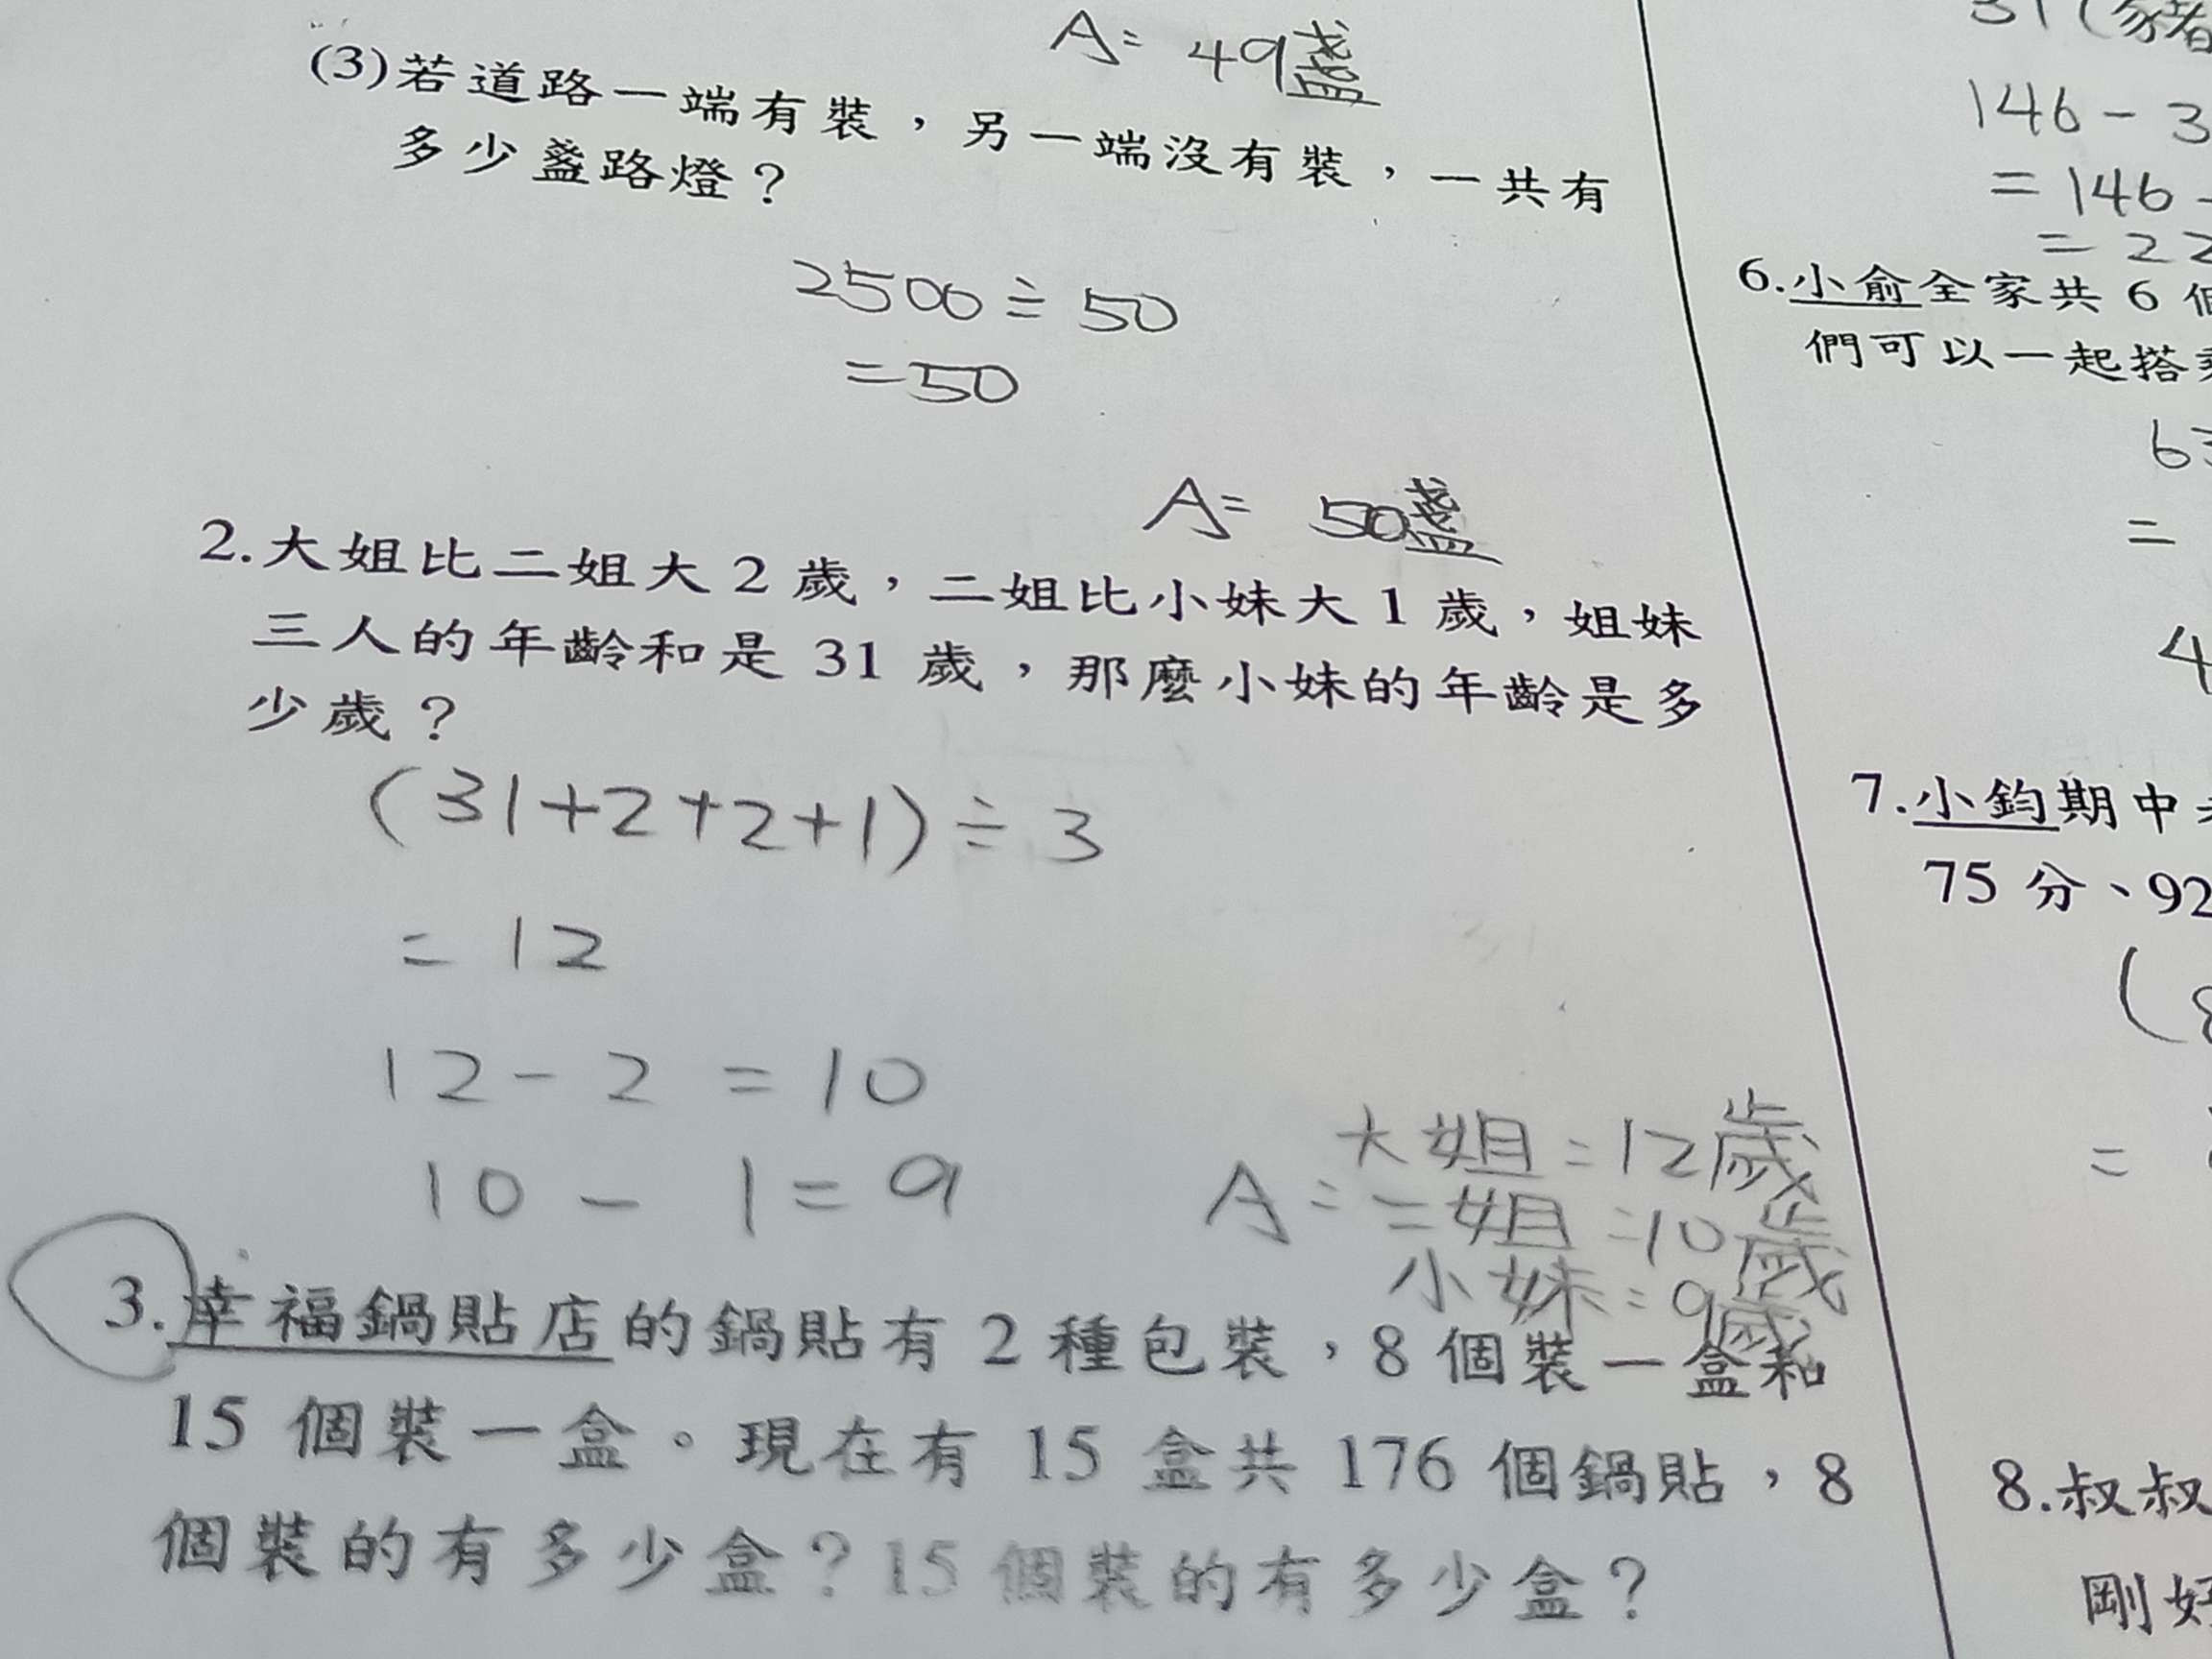 A= 49盞
(3)若道路一端有裝，另一端沒有裝，一共有
多少盞路燈？
2500÷50
=50
A= 50盞
2.大姐比二姐大2歲，二姐比小妹大1歲，姐妹
三人的年齡和是31歲，那麼小妹的年齡是多
少歲？
(31+2+2+1)÷3
= 12
12-2 =10
10-1=9
大姐=12歲
A=二姐=10歲
小妹=9歲
3.幸福鍋貼店的鍋貼有2種包裝，8個裝一盒和
15個裝一盒。現在有15盒共176個鍋貼，8
個裝的有多少盒？15個裝的有多少盒？
146-3
=146-
=22
6.小俞全家共6
們可以一起搭
63
=
4
7.小鈞期中
75分、92
(8
=
8.叔叔
剛好